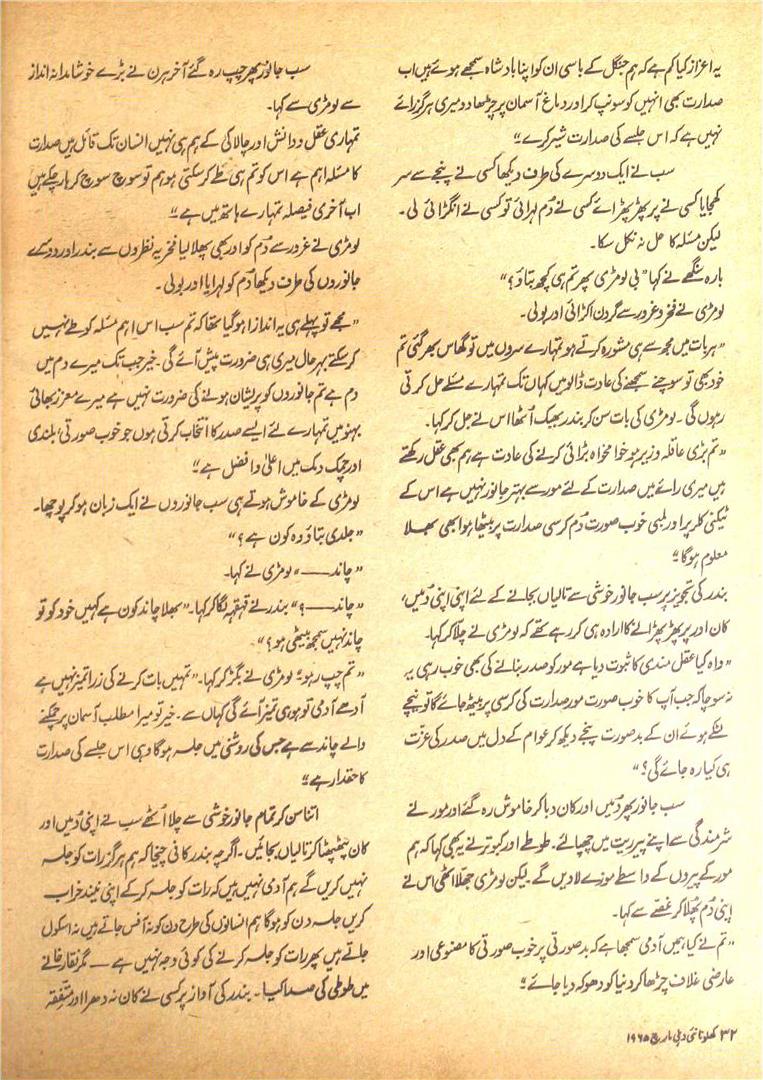 یہ اعزاز کیا کم ہے کہ ہم جنگل کے باسی ان کو اپنا بادشاہ سمجھے ہوئے ہیں اب
صدارت بھی انہیں کو سونپ کر اور دماغ آسمان پر چڑھا دو میری ہرگز رائے
نہیں ہے کہ اس جلسے کی صدارت شیر کرے“
سب نے ایک دوسرے کی طرف دیکھا کسی نے پنجے سے سر
کھجایا کسی نے پر پھڑ پھڑائے کسی نے دُم لہرائی تو کسی نے انگڑائی لی۔
لیکن مسئلہ کا حل نہ نکل سکا۔
بارہ سنگھے نے کہا ”بی لومڑی پھر تم ہی کچھ بتاؤ؟“
لومڑی نے فخر و غرور سے گردن اکڑائی اور بولی۔
”ہر بات میں مجھ سے ہی مشورہ کرتے ہو تمہارے سروں میں تو گھاس بھر گئی تم
خود بھی تو سوچنے سمجھنے کی عادت ڈالو میں کہاں تک تمہارے مسئلے حل کرتی
رہوں گی۔ لومڑی کی بات سن کر بندر بھبک اُٹھا اس نے جل کر کہا۔
”تم بڑی عاقلہ و زیر ہو خوا مخواہ بڑائی کرنے کی عادت ہے ہم بھی عقل رکھتے
ہیں میری رائے میں صدارت کے لئے مور سے بہتر جانور نہیں ہے اس کے
ٹیکنی کلر پر اور لمبی خوب صورت دُم کرسی صدارت پر بیٹھا ہوا بھی بھلا
معلوم ہوگا“
بندر کی تجویز پر سب جانور خوشی سے تالیاں بجانے کے لئے اپنی اپنی دُمیں،
کان اور پر پھڑ پھڑانے کا ارادہ ہی کر رہے تھے کہ لومڑی نے چلا کر کہا۔
”واہ کیا عقل مندی کا ثبوت دیا ہے مور کو صدر بنانے کی بھی خوب رہی یہ
نہ سوچا کہ جب آپ کا خوب صورت مور صدارت کی کرسی پر بیٹھ جائے گا تو نیچے
لٹکے ہوئے ان کے بد صورت پنجے دیکھ کر عوام کے دل میں صدر کی عزّت
ہی کیا رہ جائے گی؟“
سب جانور پھر دُمیں اور کان دبا کر خاموش رہ گئے اور مور نے
شرمندگی سے اپنے پیر ریت میں چھپائے۔ طوطے اور کبوتر نے یہ بھی کہا کہ ہم
مور کے پیروں کے واسطے موزے لا دیں گے۔ لیکن لومڑی جھلّا اٹھی اس نے
اپنی دُم پھلا کر غصّے سے کہا۔
”تم نے کیا ہمیں آدمی سمجھا ہے کہ بدصورتی پر خوب صورتی کا مصنوعی اور
عارضی غلاف چڑھا کر دنیا کو دھوکہ دیا جائے“
سب جانور پھر چپ رہ گئے آخر ہرن نے بڑے خوشامدانہ انداز
سے لومڑی سے کہا۔
تمہاری عقل و دانش اور چالاکی کے ہم ہی نہیں انسان تک قائل ہیں صدارت
کا مسئلہ اہم ہے اس کو تم ہی طے کر سکتی ہو ہم تو سوچ سوچ کر ہار چکے ہیں
اب آخری فیصلہ تمہارے ہاتھ میں ہے“
لومڑی نے غرور سے دُم کو اور بھی پھلا لیا فخریہ نظروں سے بندر اور دوسرے
جانوروں کی طرف دیکھا دُم کو لہرایا اور بولی۔
”مجھے تو پہلے ہی یہ اندازا ہو گیا تھا کہ تم سب اس اہم مسئلہ کو طے نہیں
کر سکتے بہرحال میری ہی ضرورت پیش آئے گی۔ خیر جب تک میرے دم میں
دم ہے تم جانوروں کو پریشان ہونے کی ضرورت نہیں ہے میرے معزز بھائی
بہنو میں تمہارے لئے ایسے صدر کا انتخاب کرتی ہوں جو خوب صورتی، بلندی
اور چمک دمک میں اعلیٰ و افضل ہے“
لومڑی کے خاموش ہوتے ہی سب جانوروں نے ایک زبان ہو کر پوچھا۔
”جلدی بتاؤ وہ کون ہے؟“
”چاند——“ لومڑی نے کہا۔
”چاند——؟“ بندر نے قہقہہ لگا کر کہا۔ ”بھلا چاند کون ہے کہیں خود کو تو
چاند نہیں سمجھ بیٹھی ہو؟“
”تم چپ رہو“ لومڑی نے بگڑ کر کہا۔ ”تمہیں بات کرنے کی ذرا تمیز نہیں ہے
آدھے آدمی تو ہو ہی تمیز آئے گی کہاں سے۔ خیر تو میرا مطلب آسمان پر چمکنے
والے چاند سے ہے جس کی روشنی میں جلسہ ہوگا وہی اس جلسے کی صدارت
کا حقدار ہے“
اتنا سن کر تمام جانور خوشی سے چلا اُٹھے سب نے اپنی دُمیں اور
کان پٹپٹا کر تالیاں بجائیں۔ اگرچہ بندر کافی چیخا کہ ہم ہرگز رات کو جلسہ
نہیں کریں گے ہم آدمی نہیں ہیں کہ رات کو جلسہ کر کے اپنی نیند خراب
کریں جلسہ دن کو ہوگا ہم انسانوں کی طرح دن کو نہ آفس جاتے ہیں نہ اسکول
جاتے ہیں پھر رات کو جلسہ کرنے کی کوئی وجہ نہیں ہے — مگر نقار خانے
میں طوطی کی صدا کیا۔ بندر کی آواز پر کسی نے کان نہ دھرا اور متّفقہ
۳۲ کھلونا نئی دہلی مارچ ۱۹۶۵